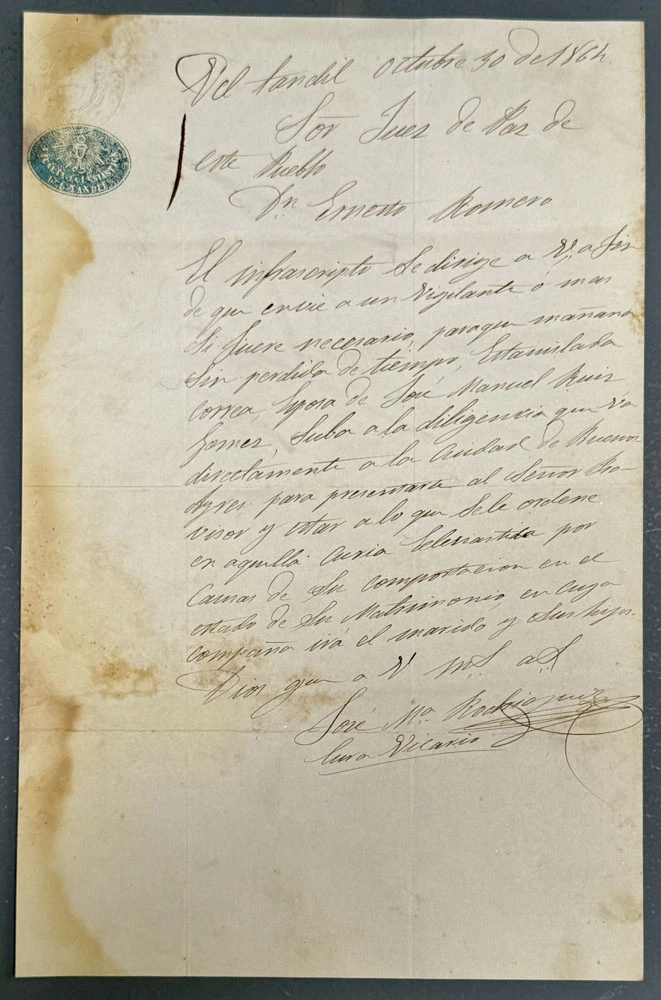 Del Tandil Octubre 30 de 1864
Sor Juez de Paz de
este Pueblo
Dn Ernesto Romero
El infrascripto se dirige a V. a fin
de que envie a un vigilante ó mas
si fuere necesario, para que mañana
sin perdida de tiempo, Estanislada
Correa, Esposa de José Manuel Ruiz
Gomez, suba a la diligencia que va
directamente a la Ciudad de Buenos
Ayres, para presentarse al Señor Pro-
visor y estar a lo que se le ordene
en aquella Curia Eclesiastica por
causas de su comportacion en el
estado de su Matrimonio, en cuya
compañia irá el marido y sus hijos.
Dios gue a V. ms. as.
José Ma Rodriguez
Cura Vicario